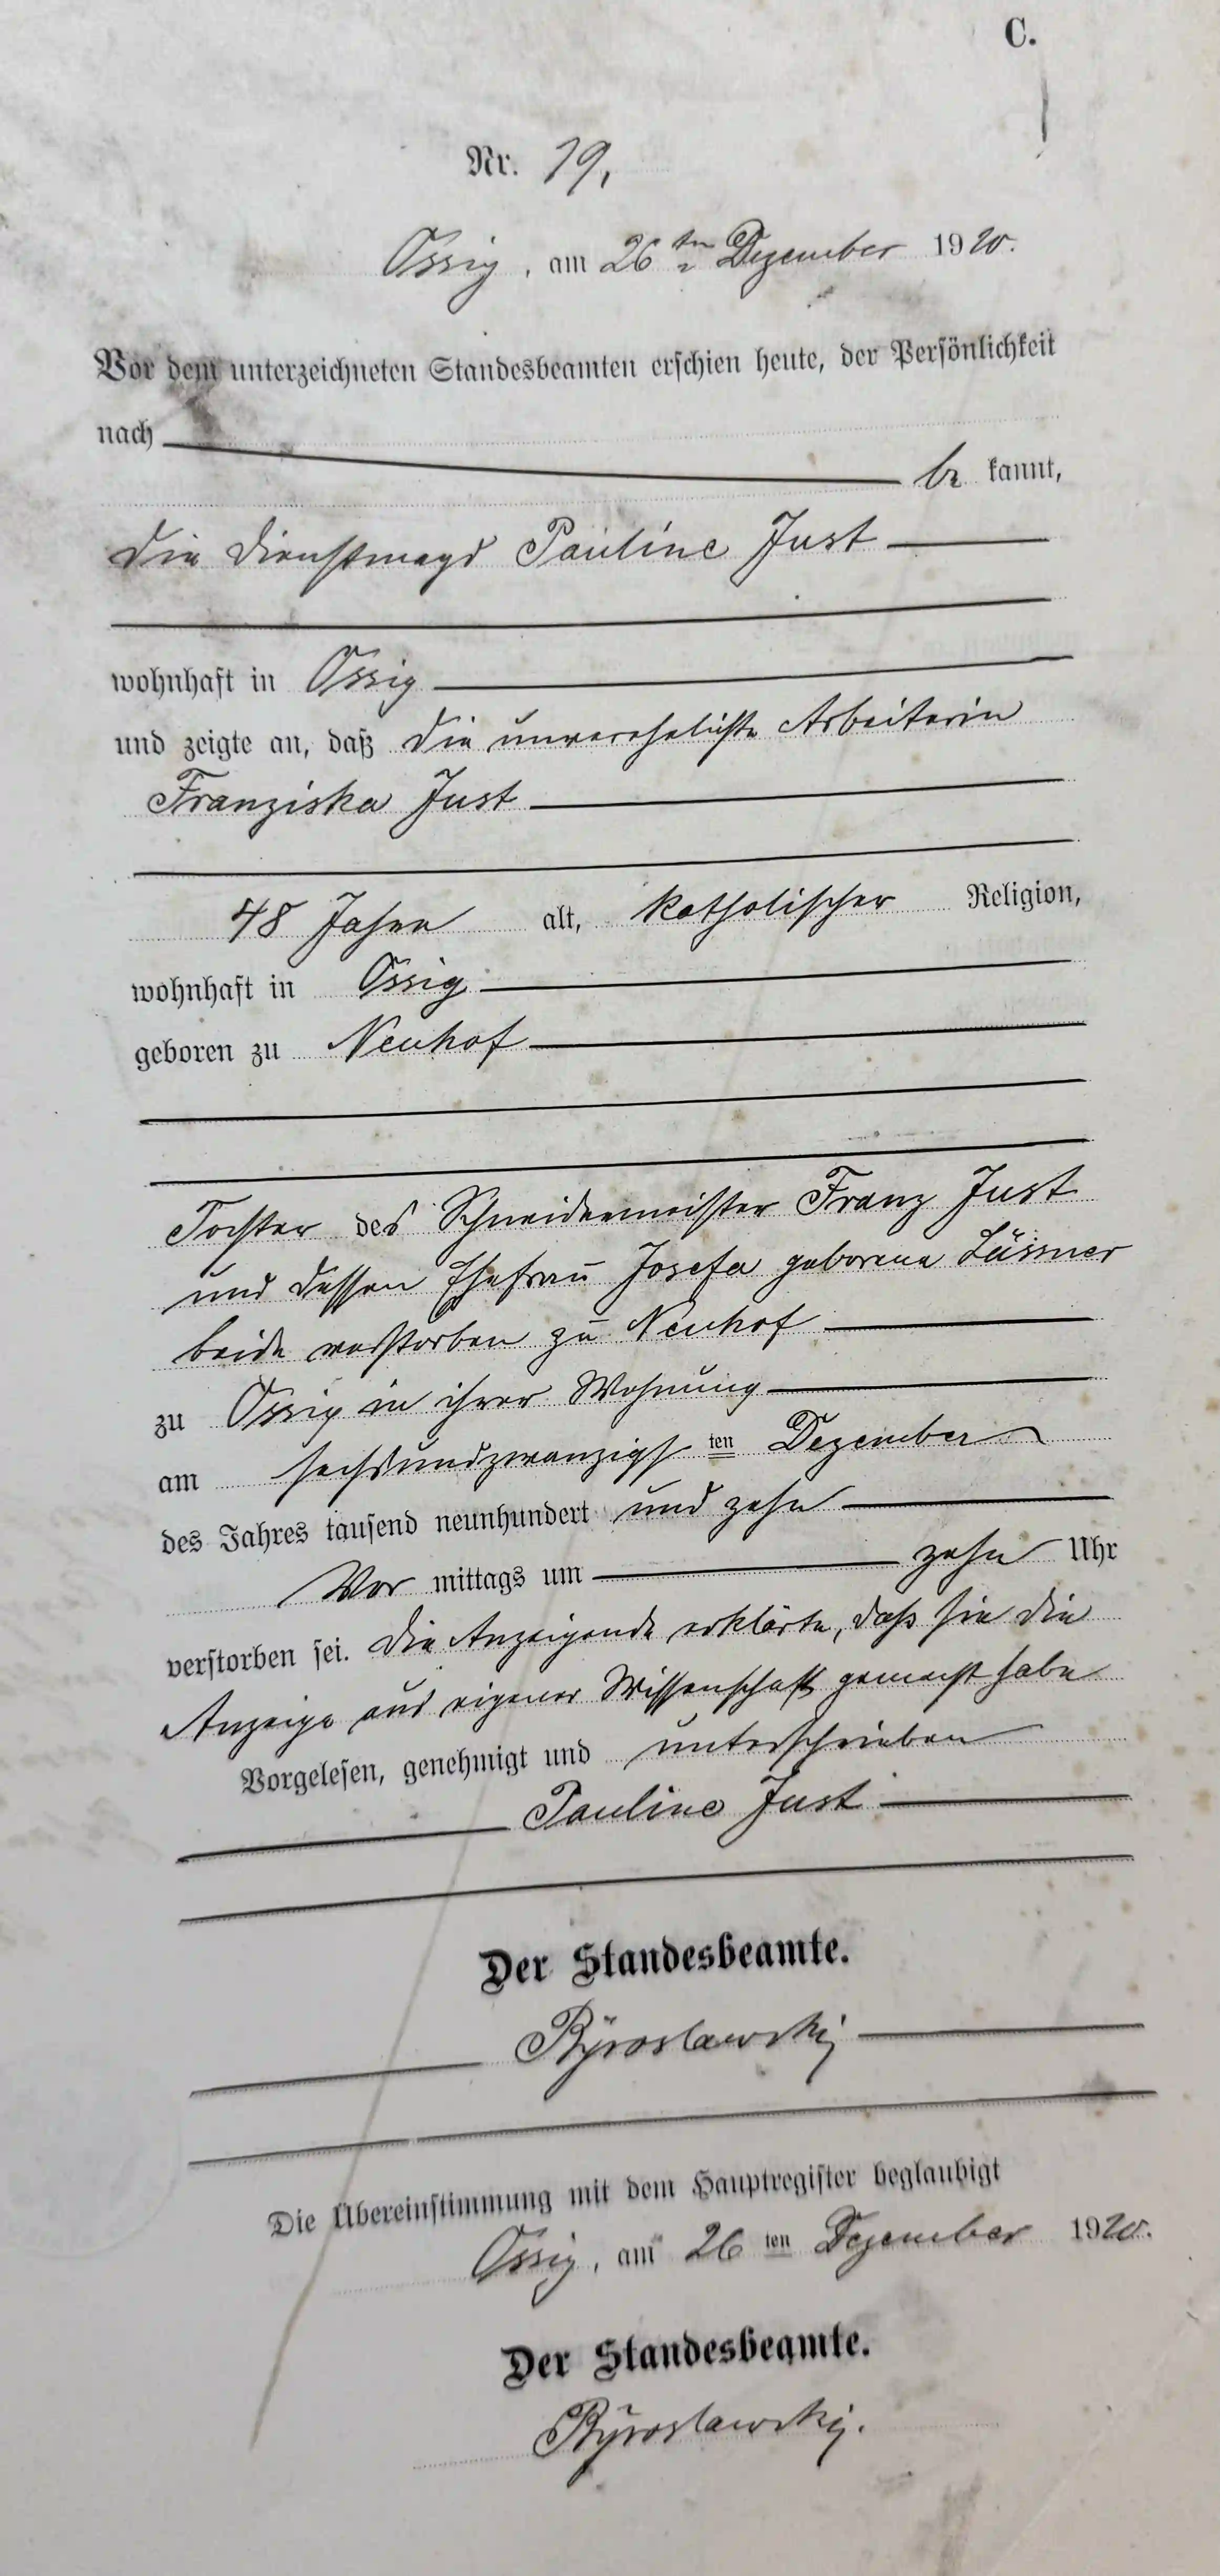 C.
Nr. 19,
Ossig, am 26ten Dezember 1910.
Vor dem unterzeichneten Standesbeamten erschien heute, der Persönlichkeit
nach
be kannt,
die Dienstmagd Pauline Just
wohnhaft in Ossig
und zeigte an, daß die unverehelichte Arbeiterin
Franziska Just
48 Jahre alt, katholischer Religion,
wohnhaft in Ossig
geboren zu Neuhof
Tochter des Schneidermeister Franz Just
und dessen Ehefrau Josefa geborene
beide verstorben zu Neuhof
zu Ossig in ihrer Wohnung
am sechsundzwanzigsten Dezember
des Jahres tausend neunhundert und zehn
Vor mittags um zehn Uhr
verstorben sei. Die Anzeigende erklärte, daß sie die
Anzeige aus eigener Wissenschaft gemacht habe
Vorgelesen, genehmigt und unterschrieben
Pauline Just
Der Standesbeamte.
Die Übereinstimmung mit dem Hauptregister beglaubigt
Ossig, am 26 ten Dezember 1910.
Der Standesbeamte.